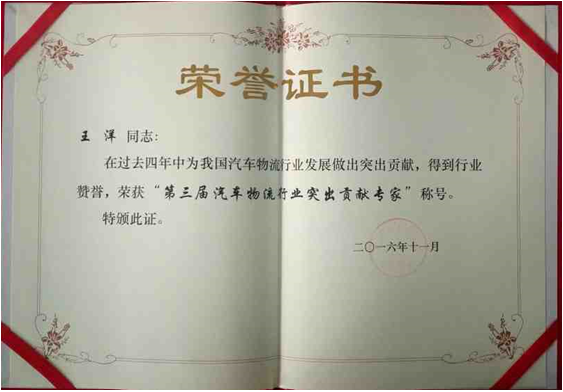 荣誉证书
王 洋 同志:
在过去四年中为我国汽车物流行业发展做出突出贡献，得到行业
赞誉，荣获“第三届汽车物流行业突出贡献专家”称号。
特颁此证。
二〇一六年十一月